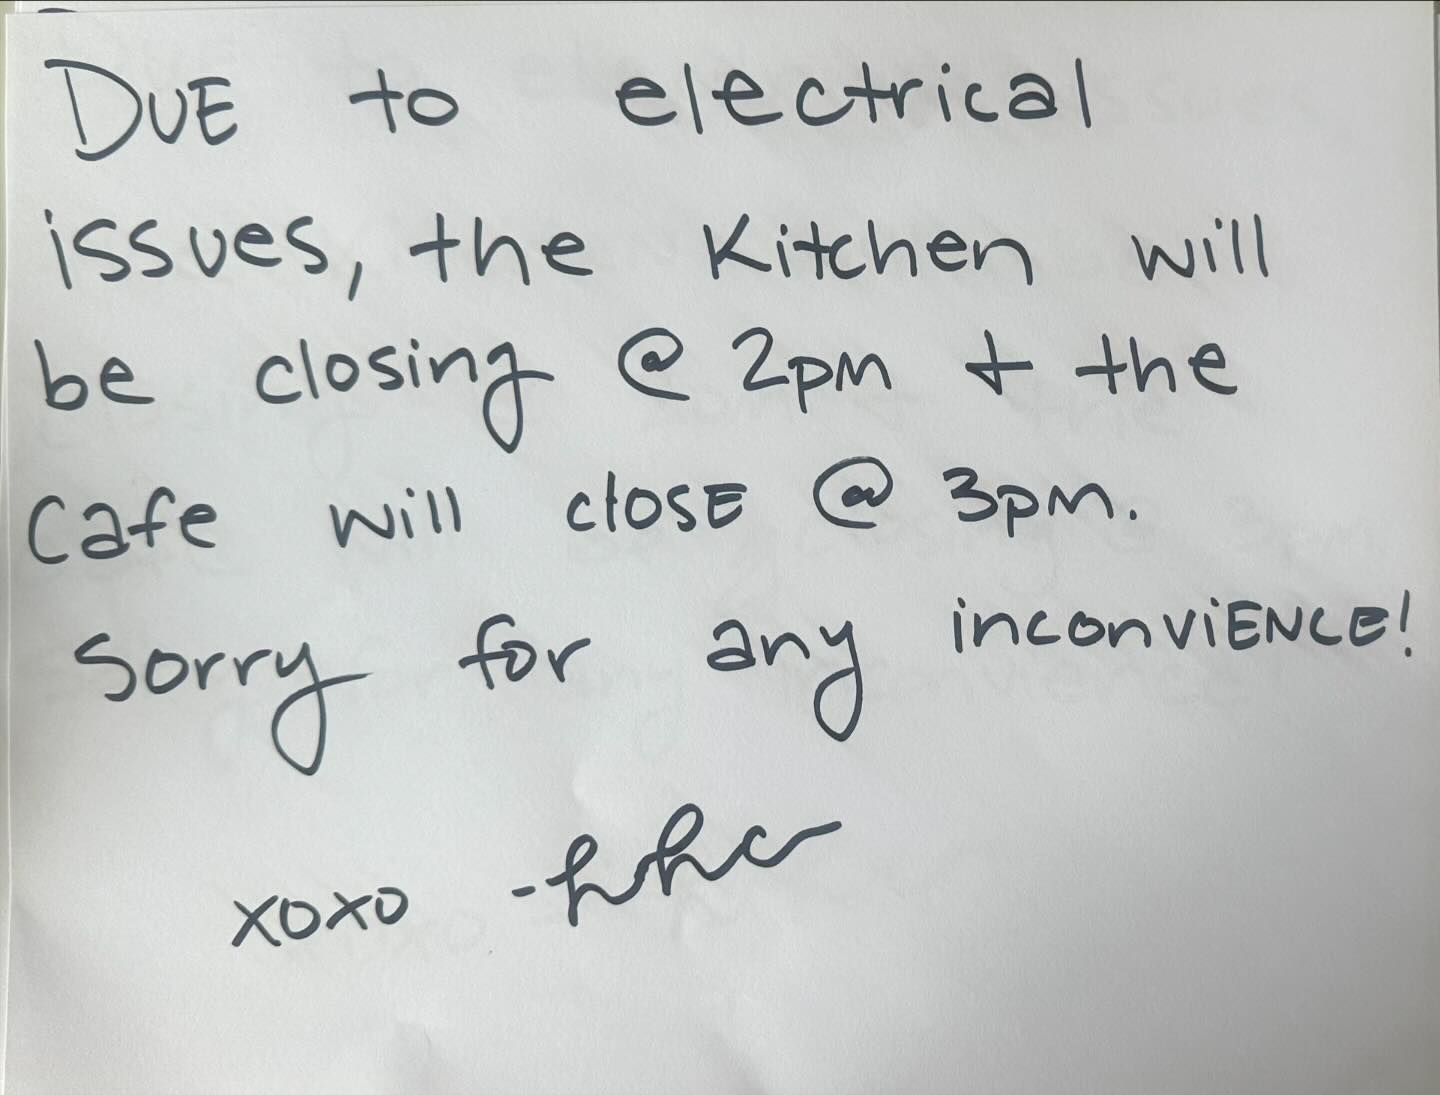 DUE to electrical
issues, the Kitchen will
be closing @ 2pm + the
Cafe will close @ 3pm.
Sorry for any inconviENCE!
xoxo -hhc